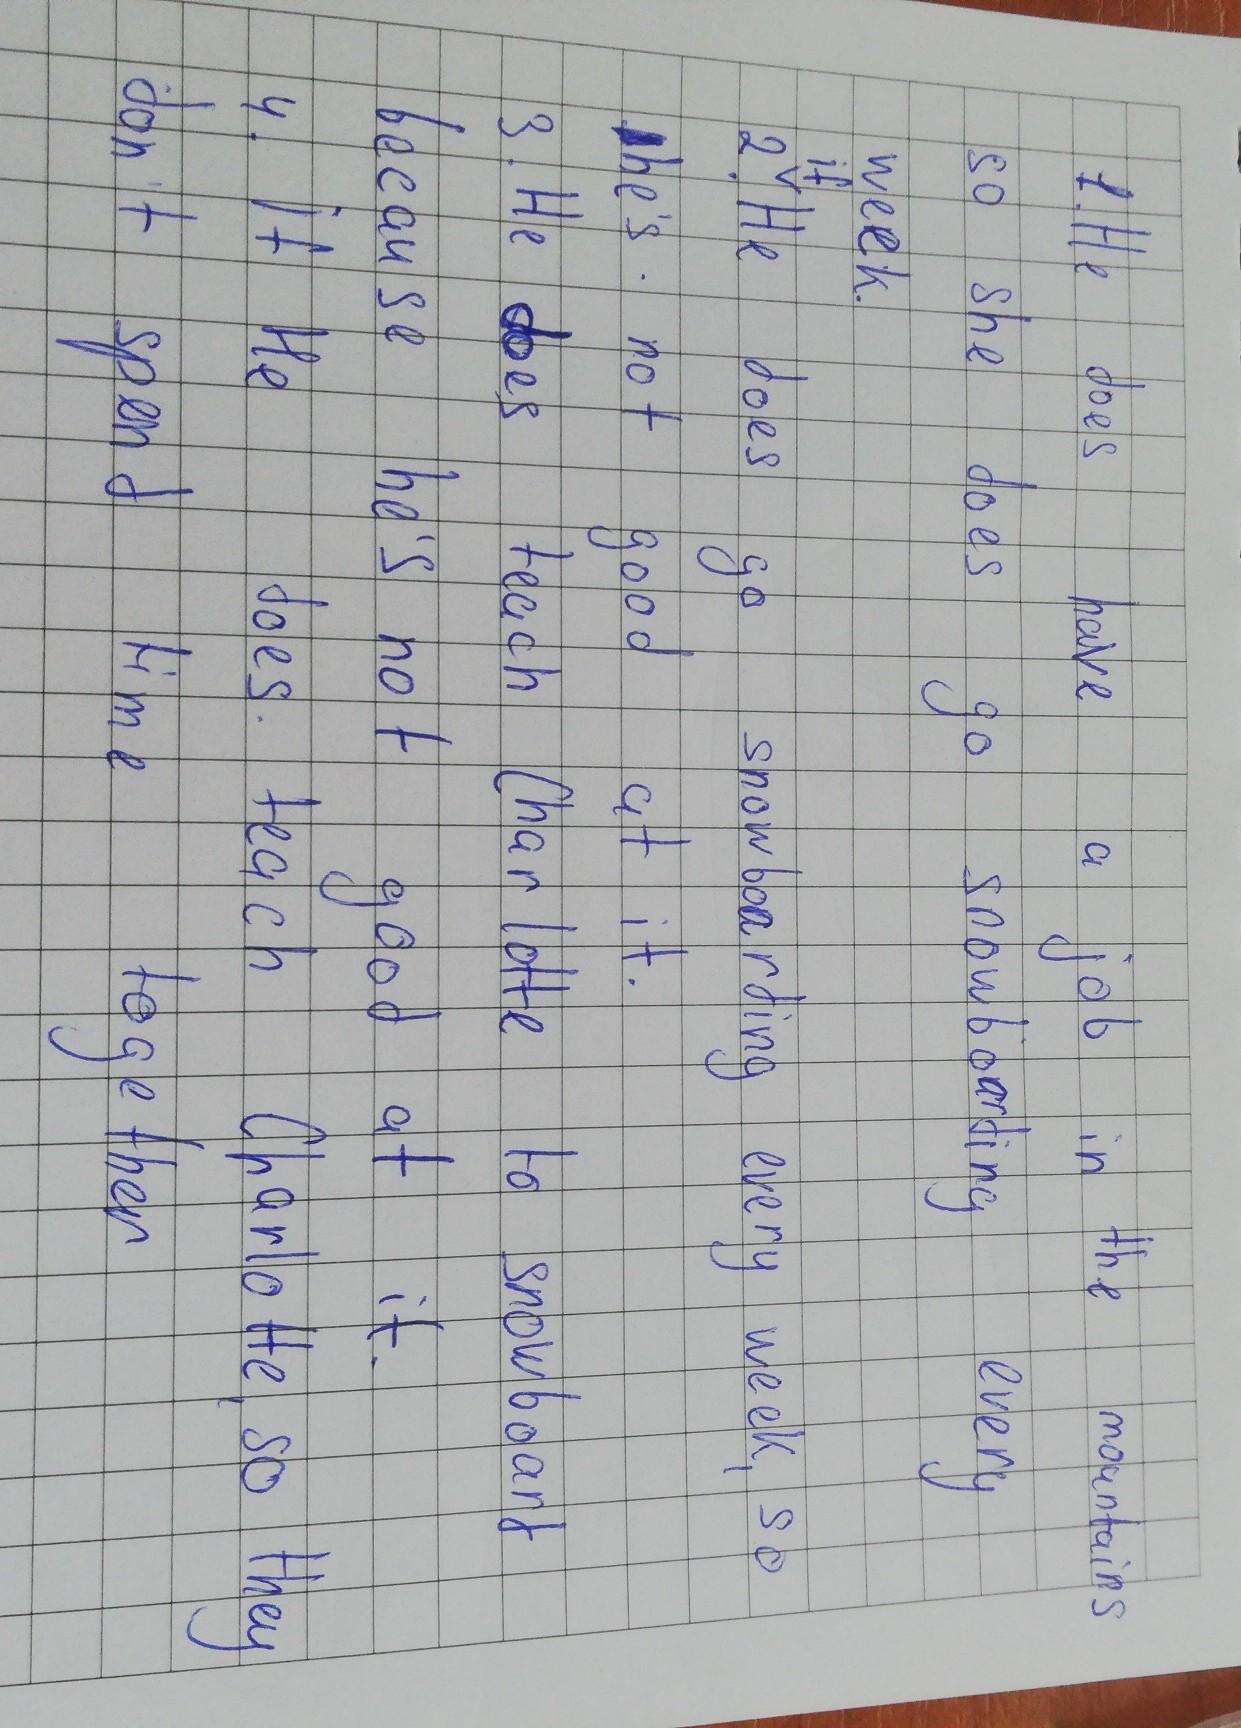 1. He does have a job in the mountains
so she does go snowboarding every
week.
if
2. He does go snowboarding every week, so
he's. not good at it.
3. He does teach Charlotte to snowboard
because he's not good at it.
4. if He does. teach Charlotte, so they
don't spend time together